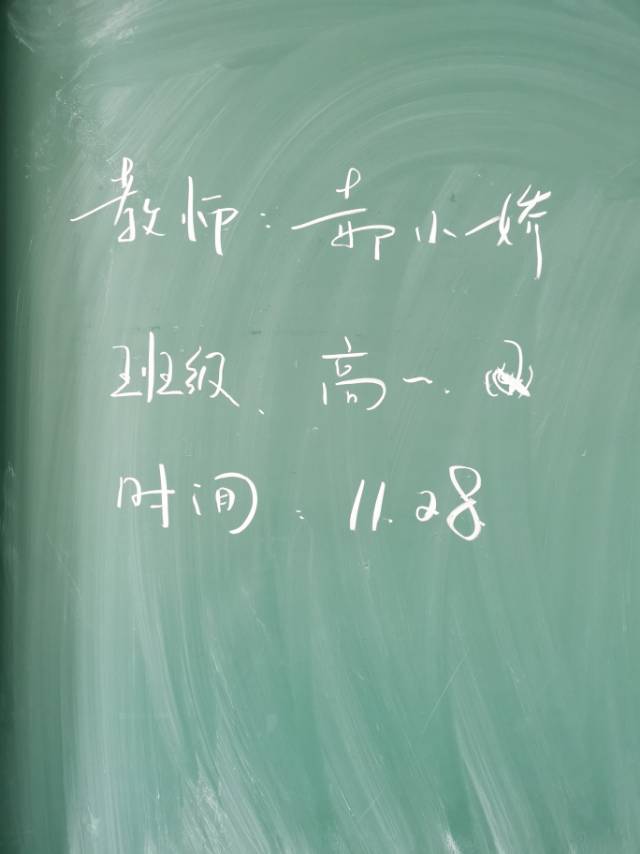 教师:郝小娇
班级、高一.
时间:11.28